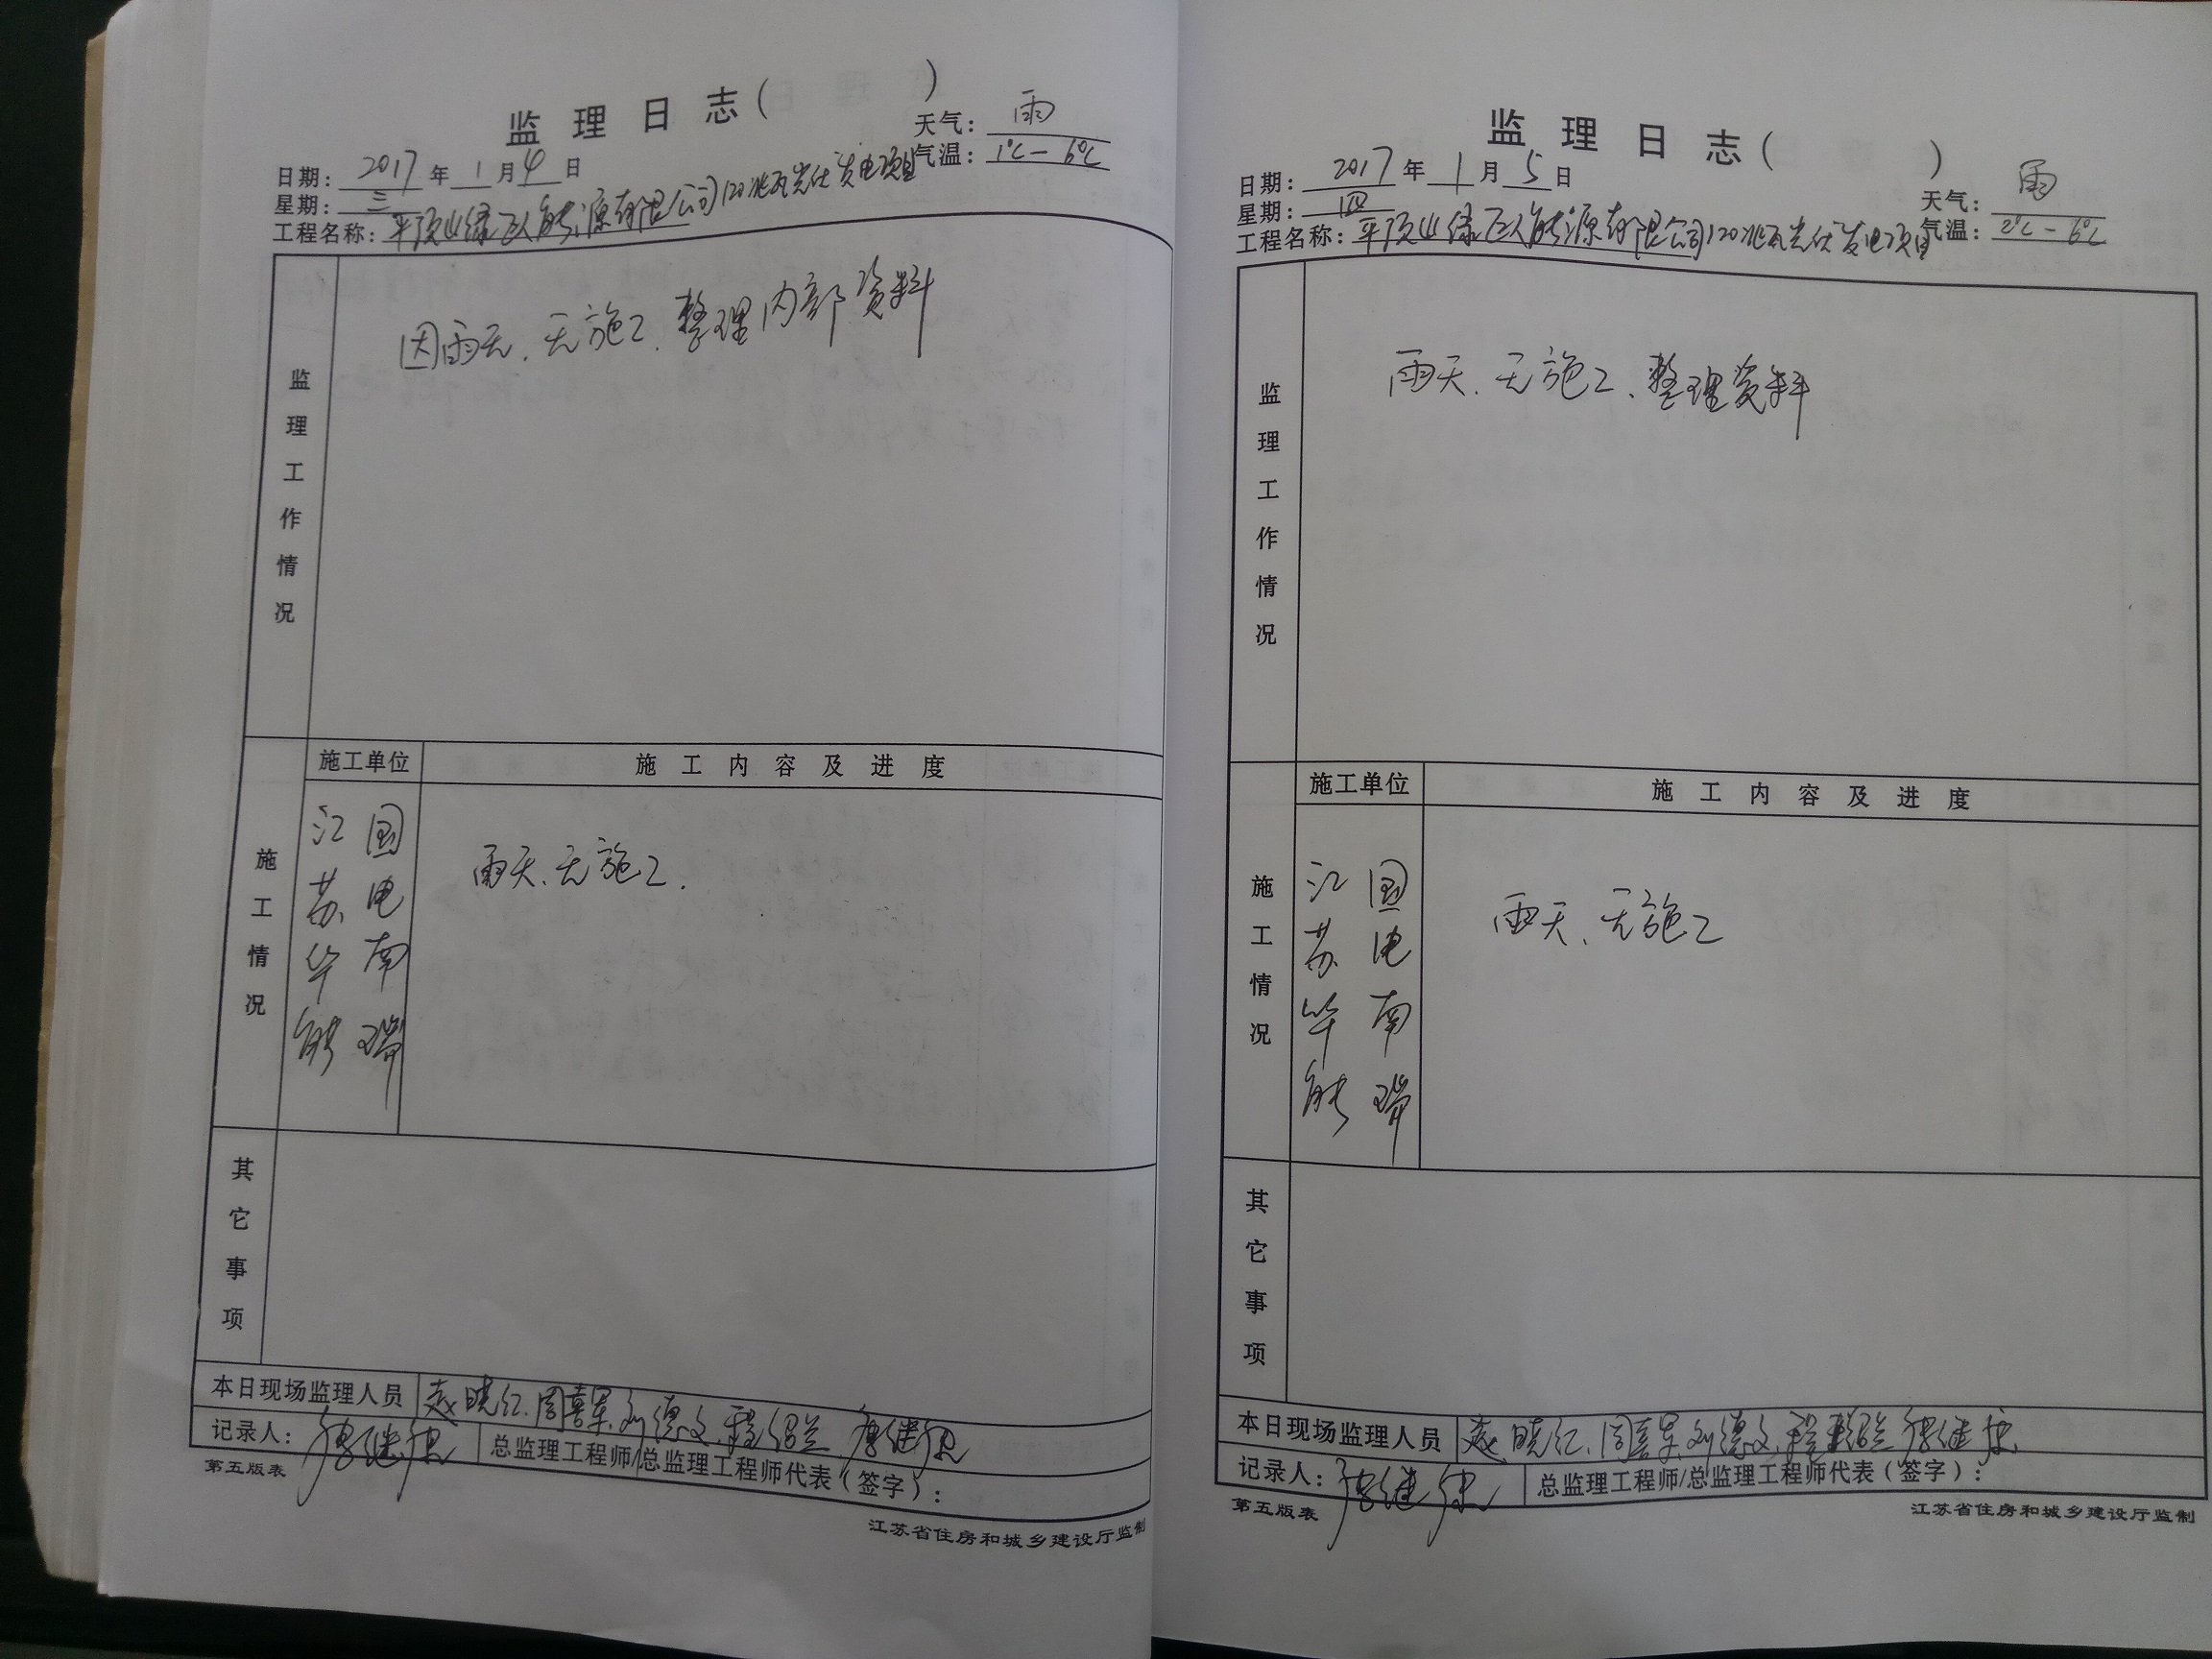 监理日志( )
日期: 2017 年 1 月 4 日
天气: 雨
星期: 三
气温: 1℃-6℃
工程名称: 平顶山绿巨人能源有限公司120兆瓦光伏发电项目
监理工作情况
因雨天.无施工.整理内部资料
施工单位
施工内容及进度
施工情况
江苏华能
国电南瑞
雨天、无施工.
其它事项
本日现场监理人员
赵晓红.周喜军.刘德文.
记录人:
总监理工程师/总监理工程师代表(签字):
第五版表
江苏省住房和城乡建设厅监制
监理日志( )
日期: 2017 年 1 月 5 日
天气: 雨
星期: 四
气温: 2℃-6℃
工程名称: 平顶山绿巨人能源有限公司120兆瓦光伏发电项目
监理工作情况
雨天.无施工、整理资料
施工单位
施工内容及进度
施工情况
江苏华能
国电南瑞
雨天、无施工
其它事项
本日现场监理人员
赵晓红、周喜军.刘德文.
记录人:
总监理工程师/总监理工程师代表(签字):
第五版表
江苏省住房和城乡建设厅监制